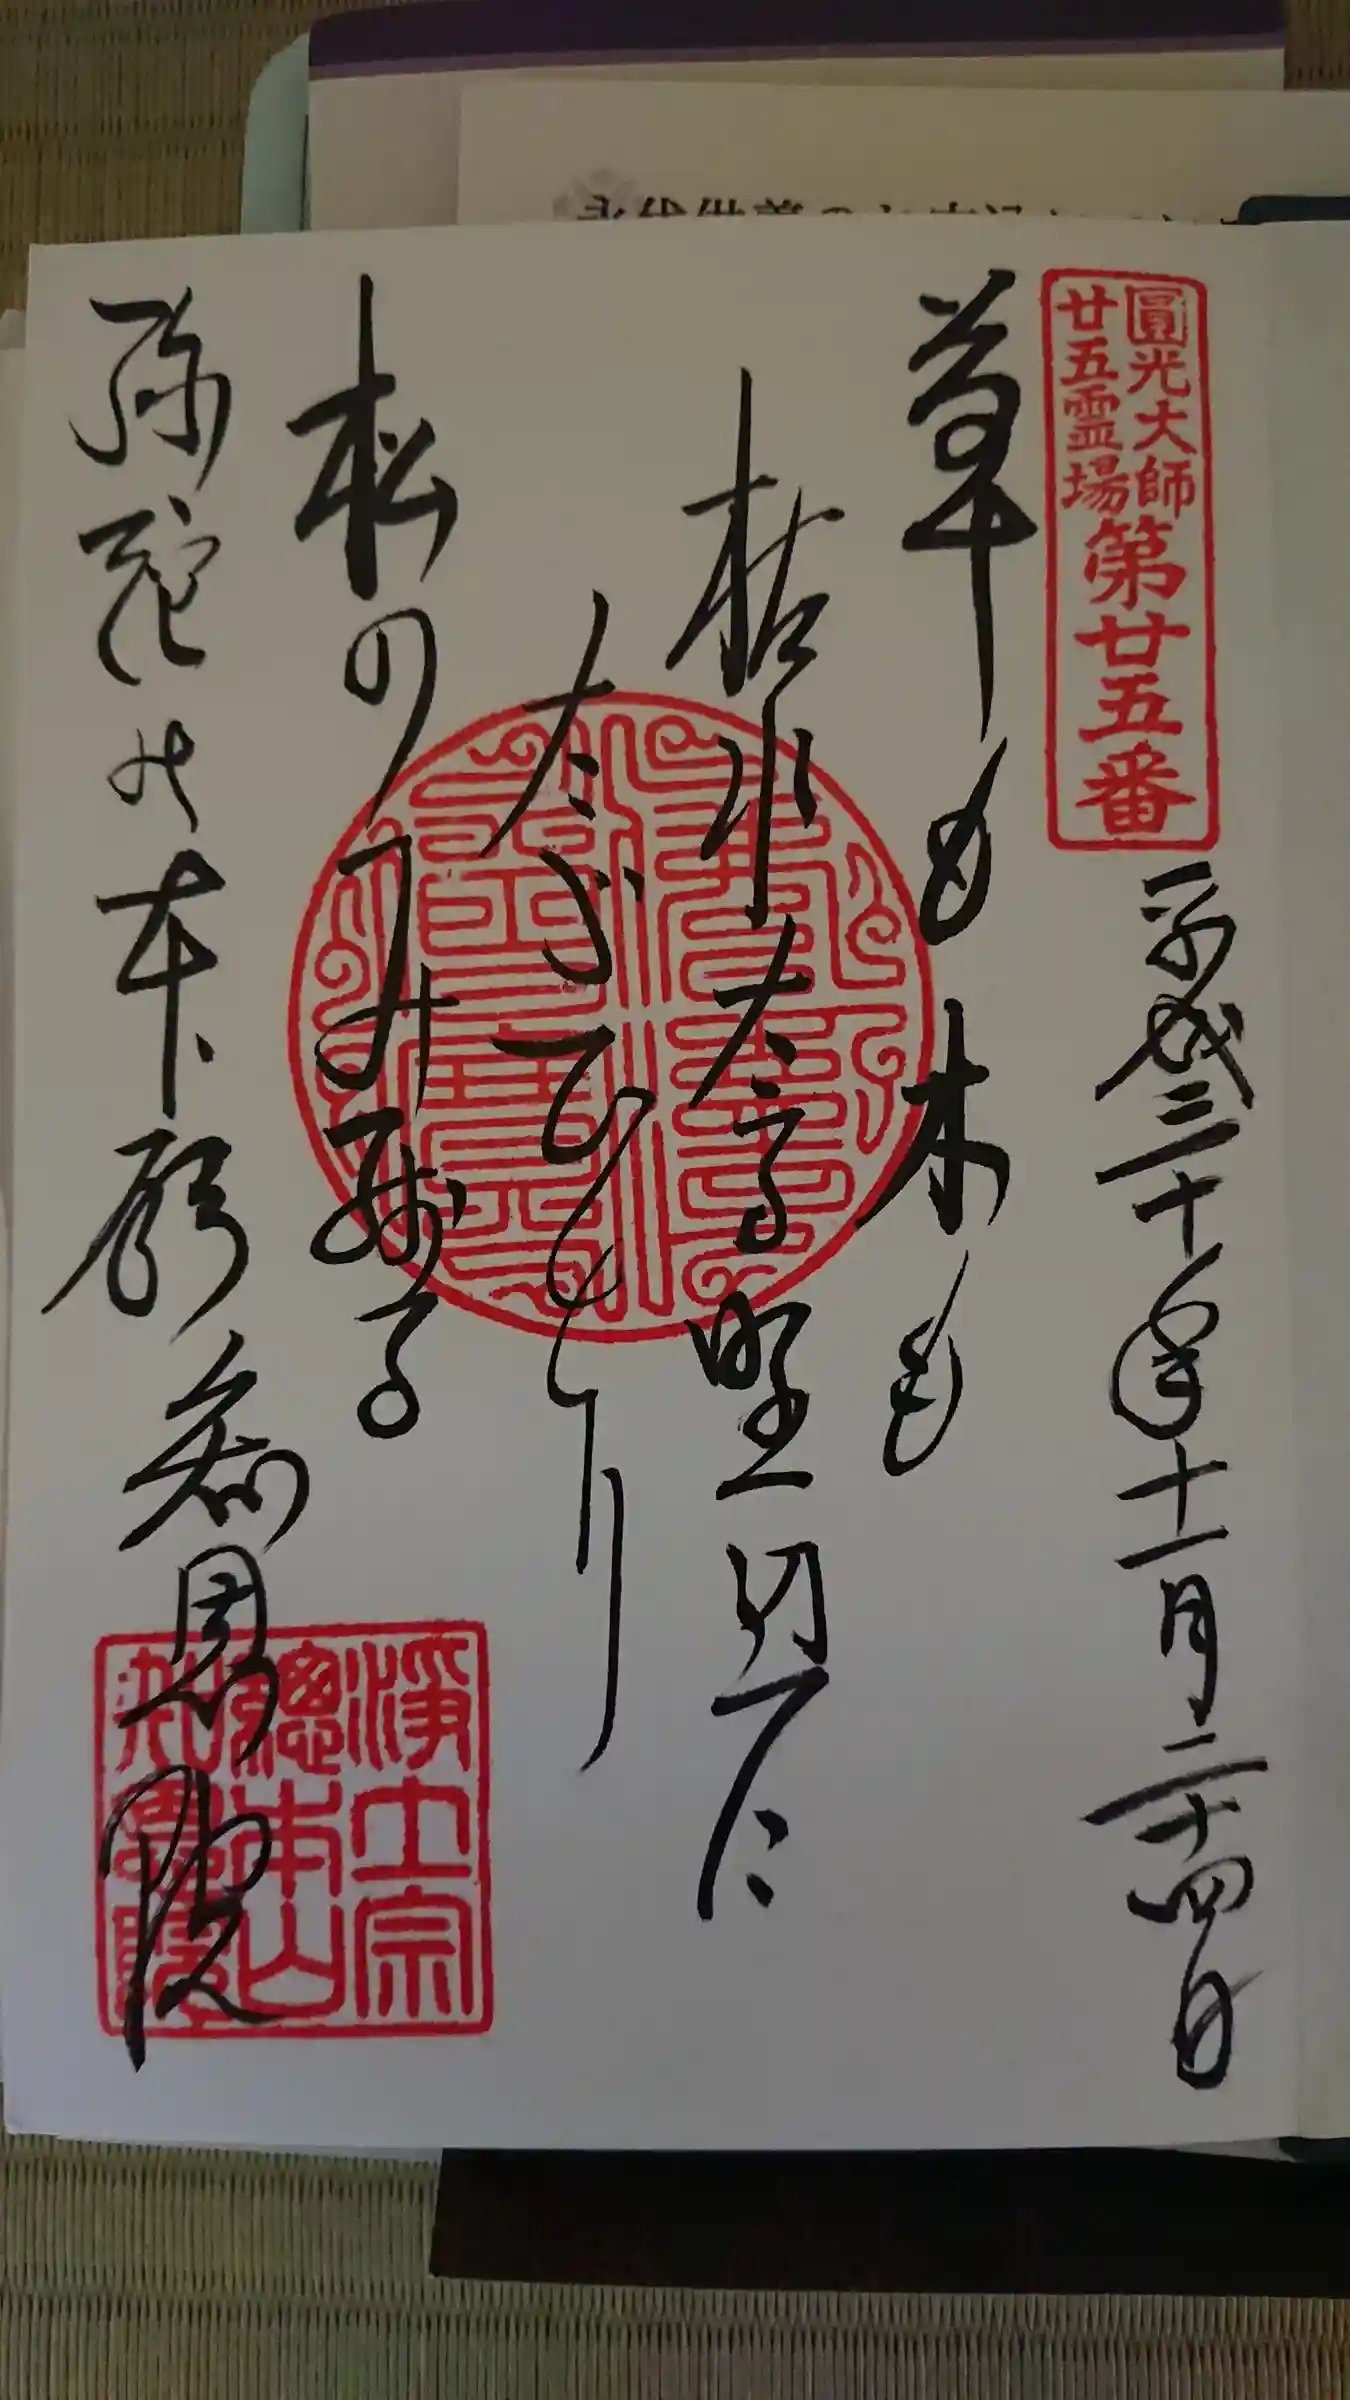 永代供養の
圓光大師
廿五霊場
第廿五番
平成三十年十一月二十四日
草も木も
枯れたる野辺に
たゞひとり
松のみ残る
弥陀の本願 知恩院
淨土宗
總本山
知恩院